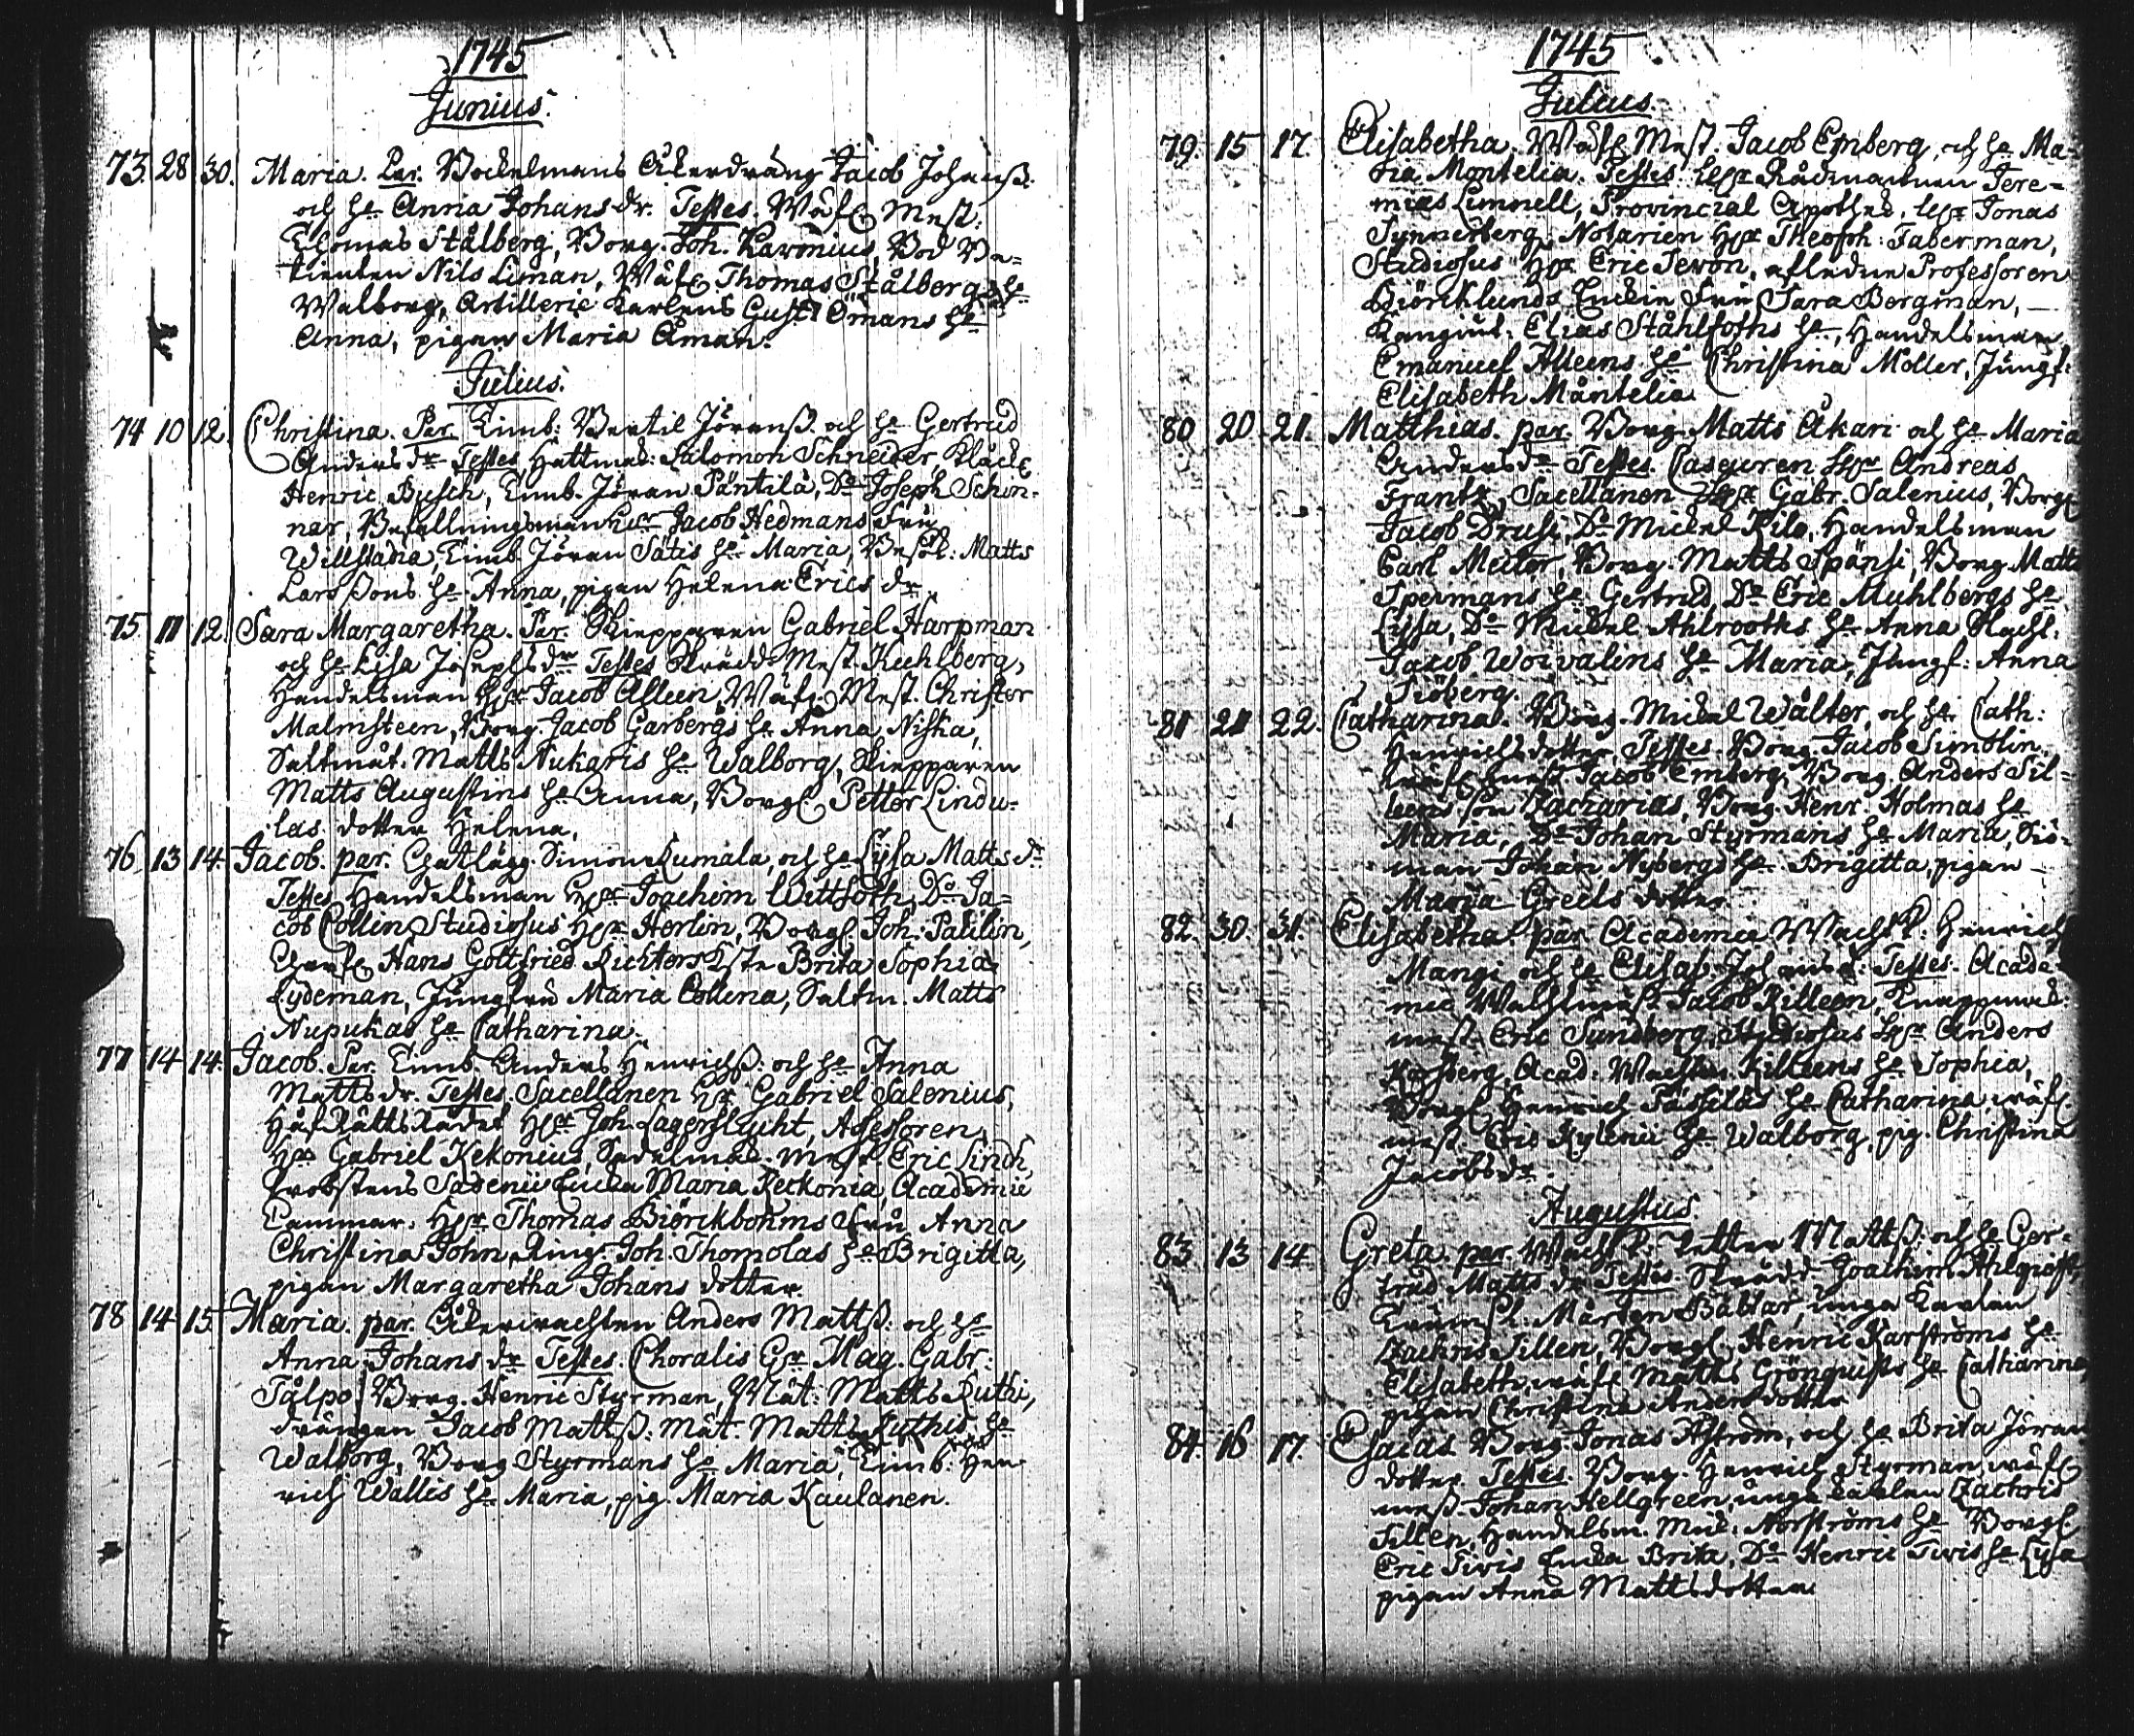 1745
Junius.
73. 28 30. Maria. Par. Bockelmans Åkerdräng Jacob Johanß.
och h. Anna Johans dr. Testes. Wäfv Mest.
Thomas Stålberg, Borg. Joh. Karmius, Bod Be=
tienten Nils Liman, Wäfv. Thomas Stålbergs h.
Walborg, Artillerie Karlens Gust. Ömans h.
Anna, pigan Maria Åman.
Julius.
74 10 12. Christina. Par. Timb: Bertil Jöranß. och h. Gertrud
Anders dr. Testes Hattmak: Salomon Schneider,
Henric Busch, Timb. Jöran Päntilä, Do Joseph Schin-
ner, Befallningsman Jacob Hedmans Fru
Willstadia, Timb. Jöran Sätis h. Maria, Besök: Matts
Larssons h. Anna, pigan Helena Erics dr.
75. 11 12. Sara Margaretha. Par. Skepparen Gabriel Harpman
och h. Lisa Josephs dr. Testes Skrädd. Mest. Kuhlberg,
Handelsman Hr Jacob Alleen, Wäfv. Mest. Christer
Malmsteen, Borg. Jacob Garbergs h. Anna Niska,
Saltmät. Matts Nukaris h. Walborg, Skepparen
Matts Augustins h. Anna, Borg. Petter Lindu-
las dotter Helena.
76 13 14. Jacob. par. Gatlägg. Simon Lumala, och h. Lysa Matts dr.
Testes Handelsman Hr Joachim Wittfoth, Do Ja=
cob Collin Studiosus Hr Herlin, Borg. Joh. Palilin,
Hans Gottfried Richters Brita Sophia
Lydeman, Jungfru Maria Collina, Saltm. Matts
Nupukas h. Catharina.
77 14 14. Jacob. Par. Timb. Anders Henrichß: och h. Anna
Matts dr. Testes. Sacellanen Hr Gabriel Salenius,
HåfRätts Rådet Hr Joh. Lagerflycht, Assessoren
Hr Gabriel Kekonius, Sadelmak. Mest. Eric Lind,
Probstens Sadenii Encka Maria Keckonia, Academie
Cammar. Hr Thomas Biörckbohms Fru Anna
Christina John, Ring. Joh. Thomolas h. Brigitta,
pigan Margaretha Johans dotter.
78 14 15. Maria. par. Åkerwachten Anders Mattß: och h.
Anna Johans dr. Testes. Choralis Hr Mag. Gabr:
Tålpo, Borg. Henric Styrman, Mät: Matts Ruthi,
drängen Jacob Mattß: Mät. Matts Ruthis h.
Walborg, Borg Styrmans h. Maria, Timb: Hen
rich Wallis h. Maria, pig. Maria Kaulanen.
1745
Julius.
79. 15 17. Elisabetha. Wäfv Mest. Jacob Emberg, och h. Ma=
ria Montelia. Testes. Hr Rådmannen Jere=
mias Limnell, Provincial Apothek. Hr Jonas
Synnerberg, Notarien Hr Theoph: Faberman,
Studiosus Hr Eric Seron, afledne Professoren
Biörcklunds Enckia Fru Sara Bergman,
Elias Ståhlfoths h., Handelsman
Emanuel Alleens h. Christina Möller, Jungf:
Elisabeth Mäntelia.
80 20 21. Matthias. par. Borg. Matts Åkari och h. Maria
Anders dr Testes. Hr Andreas
Frantz, Sacellanen Hr Gabr. Salenius, Borg.
Jacob Drusi, Do Mickel Kilo, Handelsman
Carl Meiter, Borg. Matts Spärfi, Borg Matts
Spermans h. Gertrud, Do Eric Muhlbergs h.
Lysa, Do Mickel Ahlrooths h. Anna
Jacob Woivalins h. Maria, Jungf: Anna
Siöberg.
81 21 22. Catharina. Borg. Mickel Wålter, och h. Cath:
Henrichs dotter. Testes. Borg. Jacob Simolin,
Wäfv mest. Jacob Emberg, Borg. Anders Sil=
son Zacharias, Borg. Henr. Holmas h.
Maria, Do Johan Styrmans h. Maria, Siö=
man Johan Nybergs h. Brigitta, pigan
Maria Greels dotter
82. 30. 31. Elisabetha. par Academie Wachtk: Henrich
Mangi och h. Elisab. Johans d: Testes. Acade=
mie Wachtmäst: Jacob Killeen, Knappmak.
mest. Eric Sundberg, Studiosus Hr Anders
Korsberg, Acad: Wachtm. Killeens h. Sophia,
Borg. Henrich Tassilas h. Catharina, wäfv
mest. Eric Kylenii h. Walborg, pig. Christina
Jacobs dr.
Augustus.
83. 13 14. Greta. par. Wacht k: Petter Mattß: och h. Ger=
trud Matts dr. Testes. Skrädd. Joachim Ahlqvist,
Mårten Bäblar, unga Karlen
Zachris Tillen, Borg. Henric Karströms h.
Elisabeth, wäfv Matths Grönquists h. Catharina,
pigan Christina Anders dotter
84. 16 17. Esaias. Borg. Jonas Aström, och h. Brita Jöran
dotter. Testes. Borg. Henrich Styrman, wäfv
mest. Johan Hellgreen, unge Karlen Zachris
Tillen, Handelsm. Mick. Norströms h. Borg.
Eric Tivis Encka Brita, Do Henric Tivis h. Lysa
pigan Anna Matts dotter